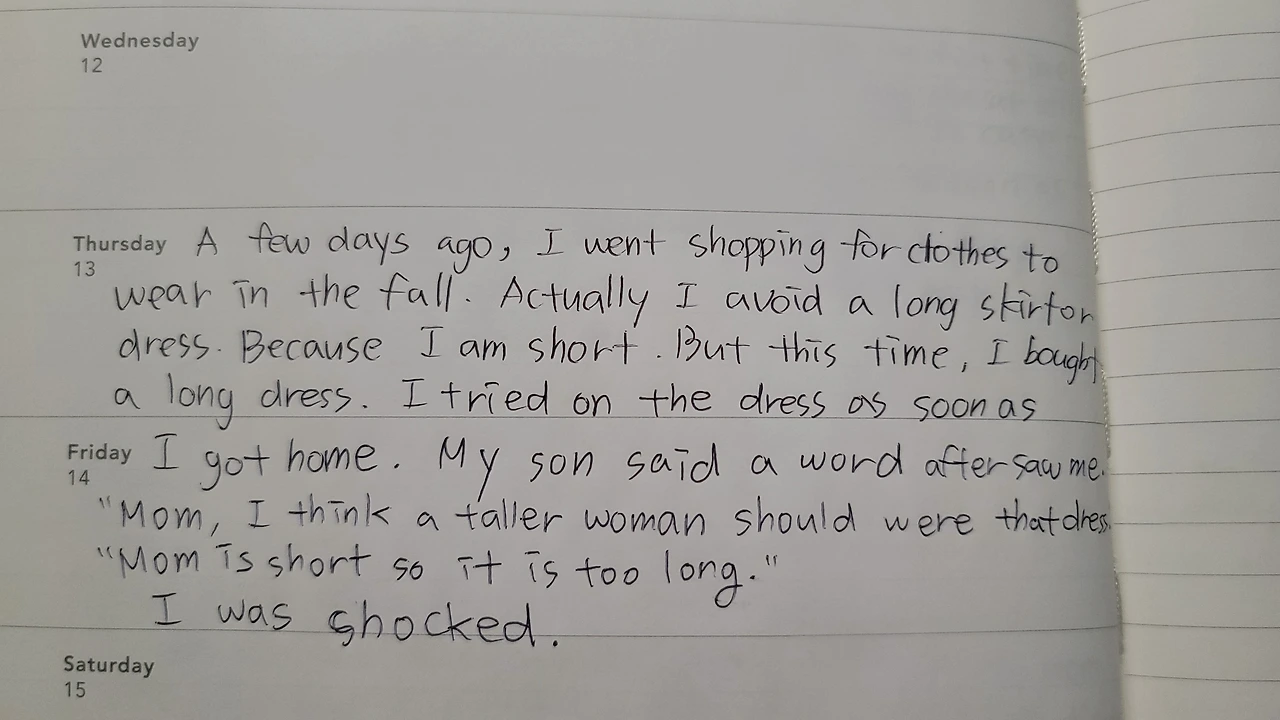 Wednesday
12
Thursday A few days ago, I went shopping for clothes to
13
wear in the fall. Actually I avoid a long skirt or
dress. Because I am short. But this time, I bought
a long dress. I tried on the dress as soon as
Friday I got home. My son said a word after saw me.
14
"Mom, I think a taller woman should were that dress.
"Mom is short so it is too long."
I was shocked.
Saturday
15